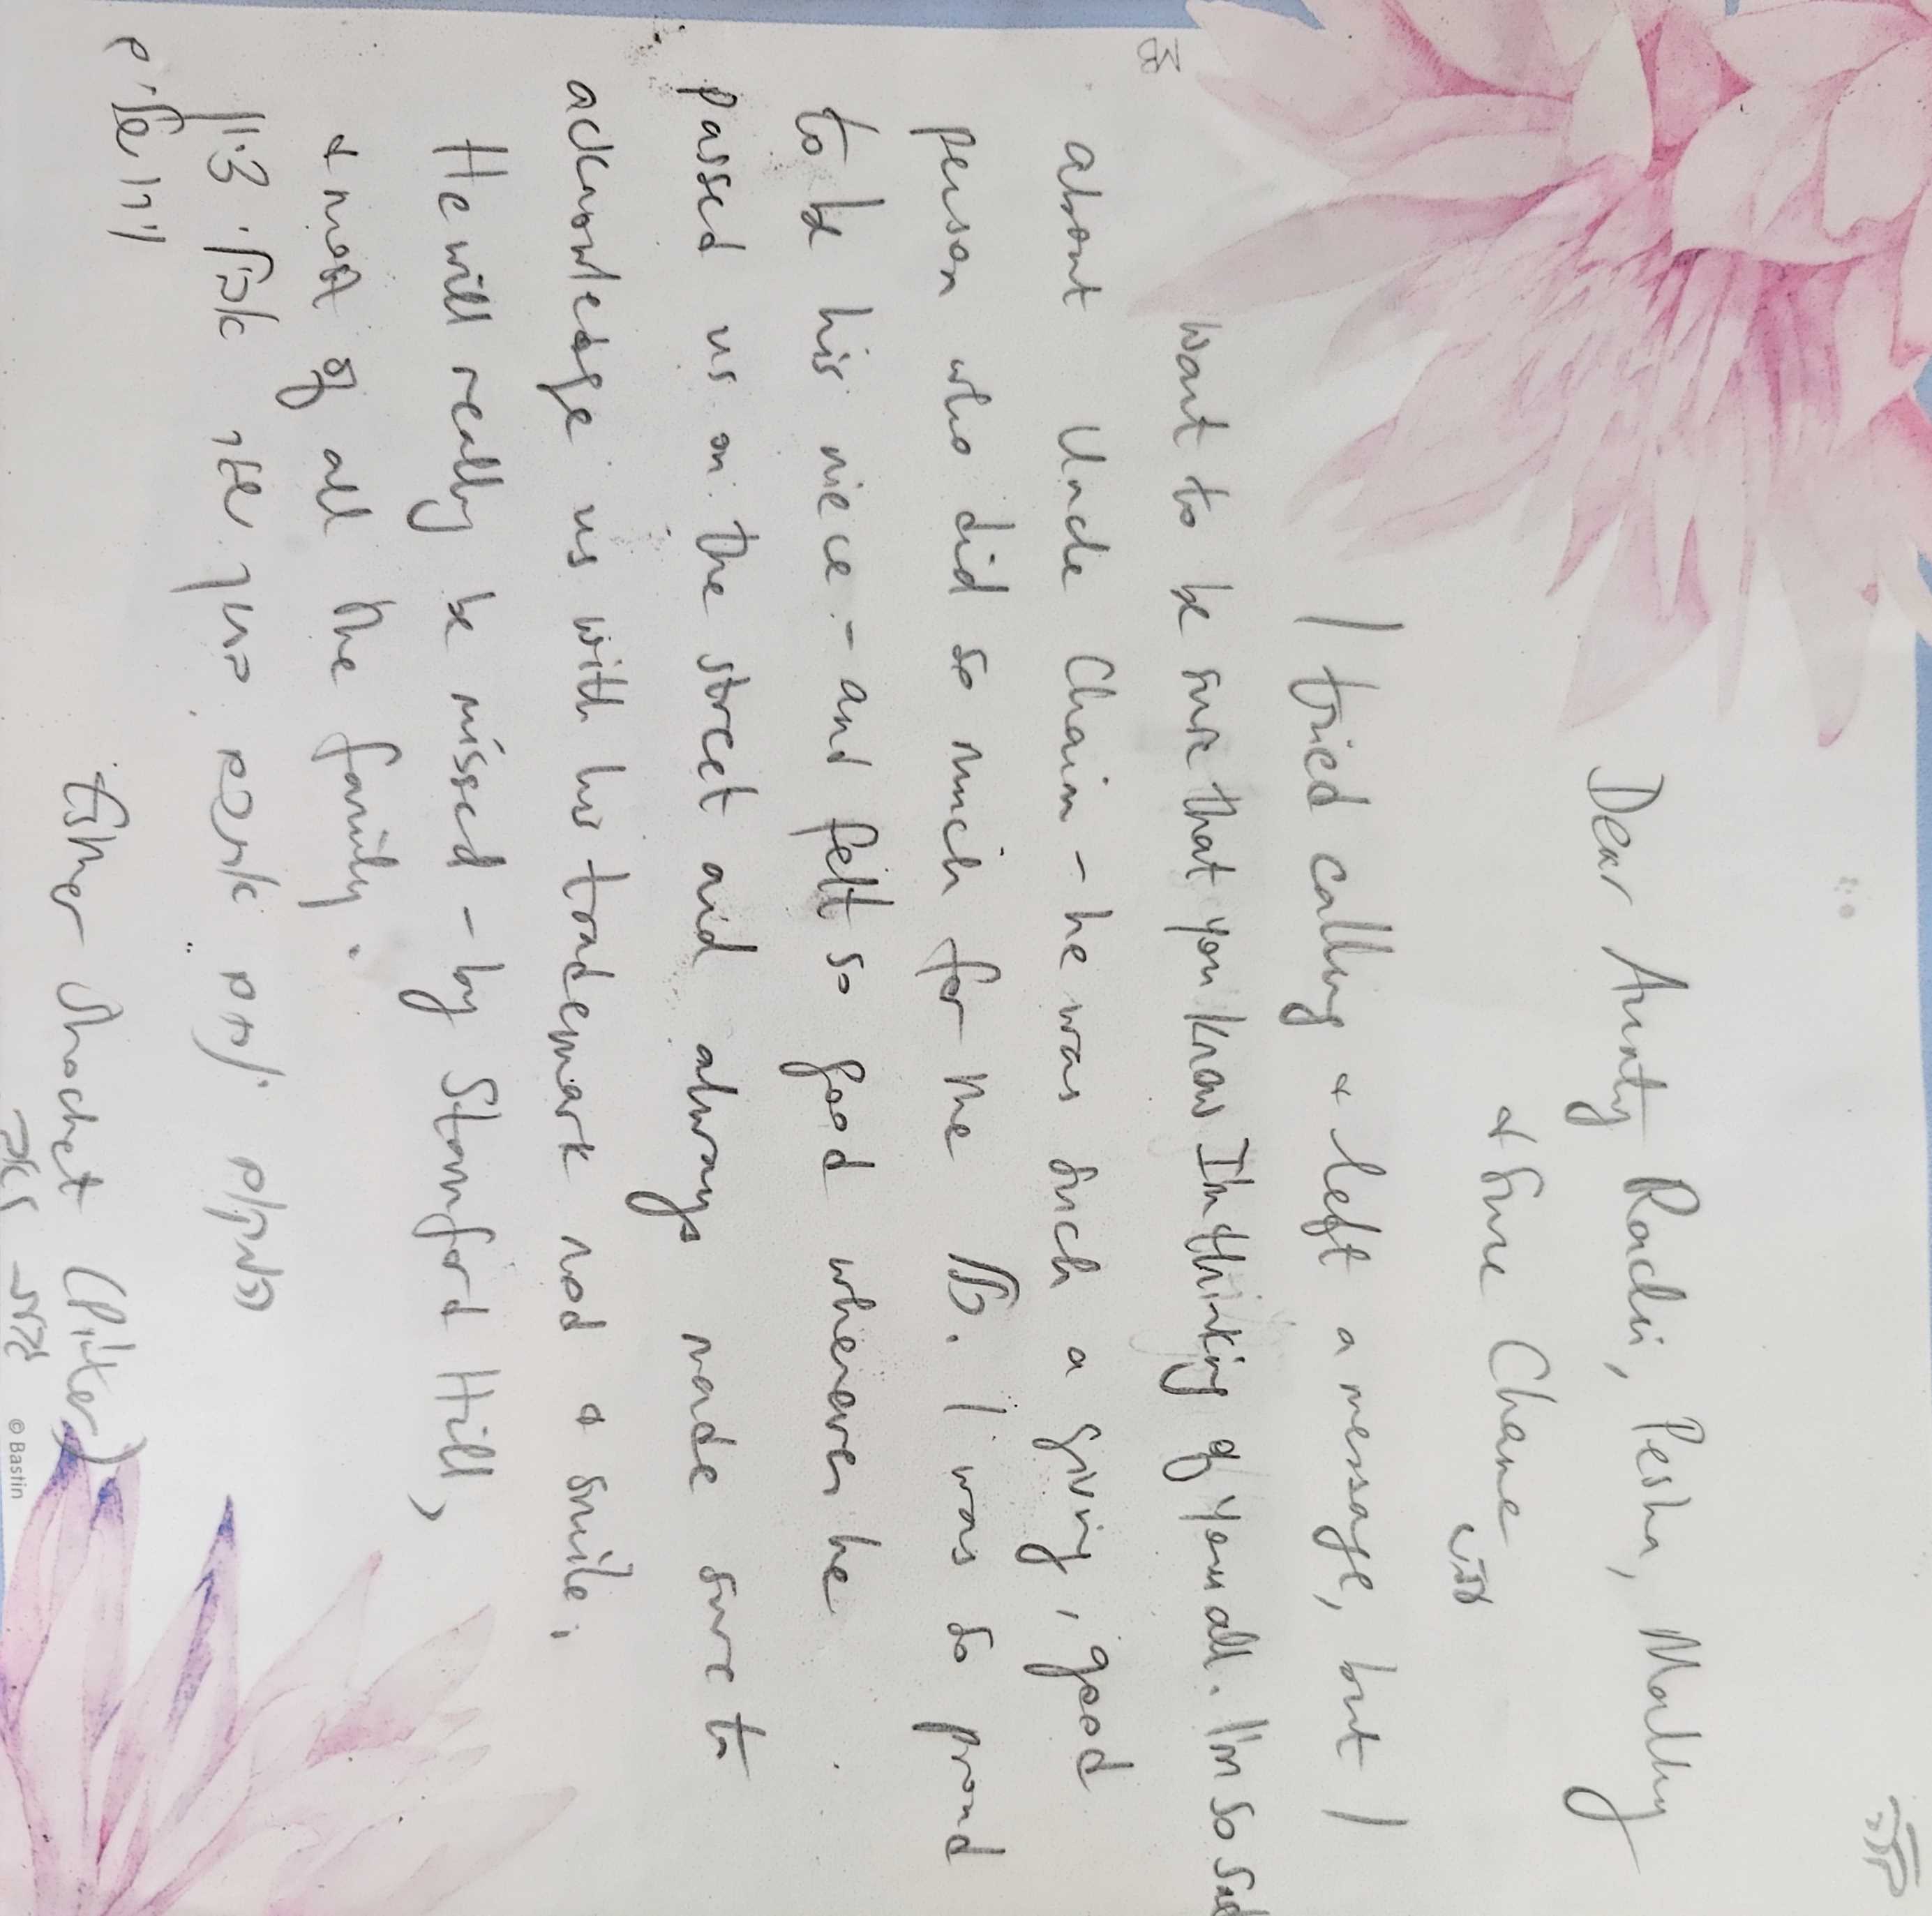 בס"ד
Dear Aunty Rochi, Pesha, Malky
& Sure Chane
I tried calling & left a message, but I
want to be sure that you know I'm thinking of you all. I'm so sad
about Uncle Chaim - he was such a giving, good
person who did so much for the כלל. I was so proud
to be his niece - and felt so good whenever he
passed us on the street and always made sure to
acknowledge us with his trademark nod & smile.
He will really be missed - by Stamford Hill,
& most of all the family.
המקום ינחם אתכם בתוך שאר אבלי ציון
וירושלים
Esther Shochet (Pinter)
© Bastin